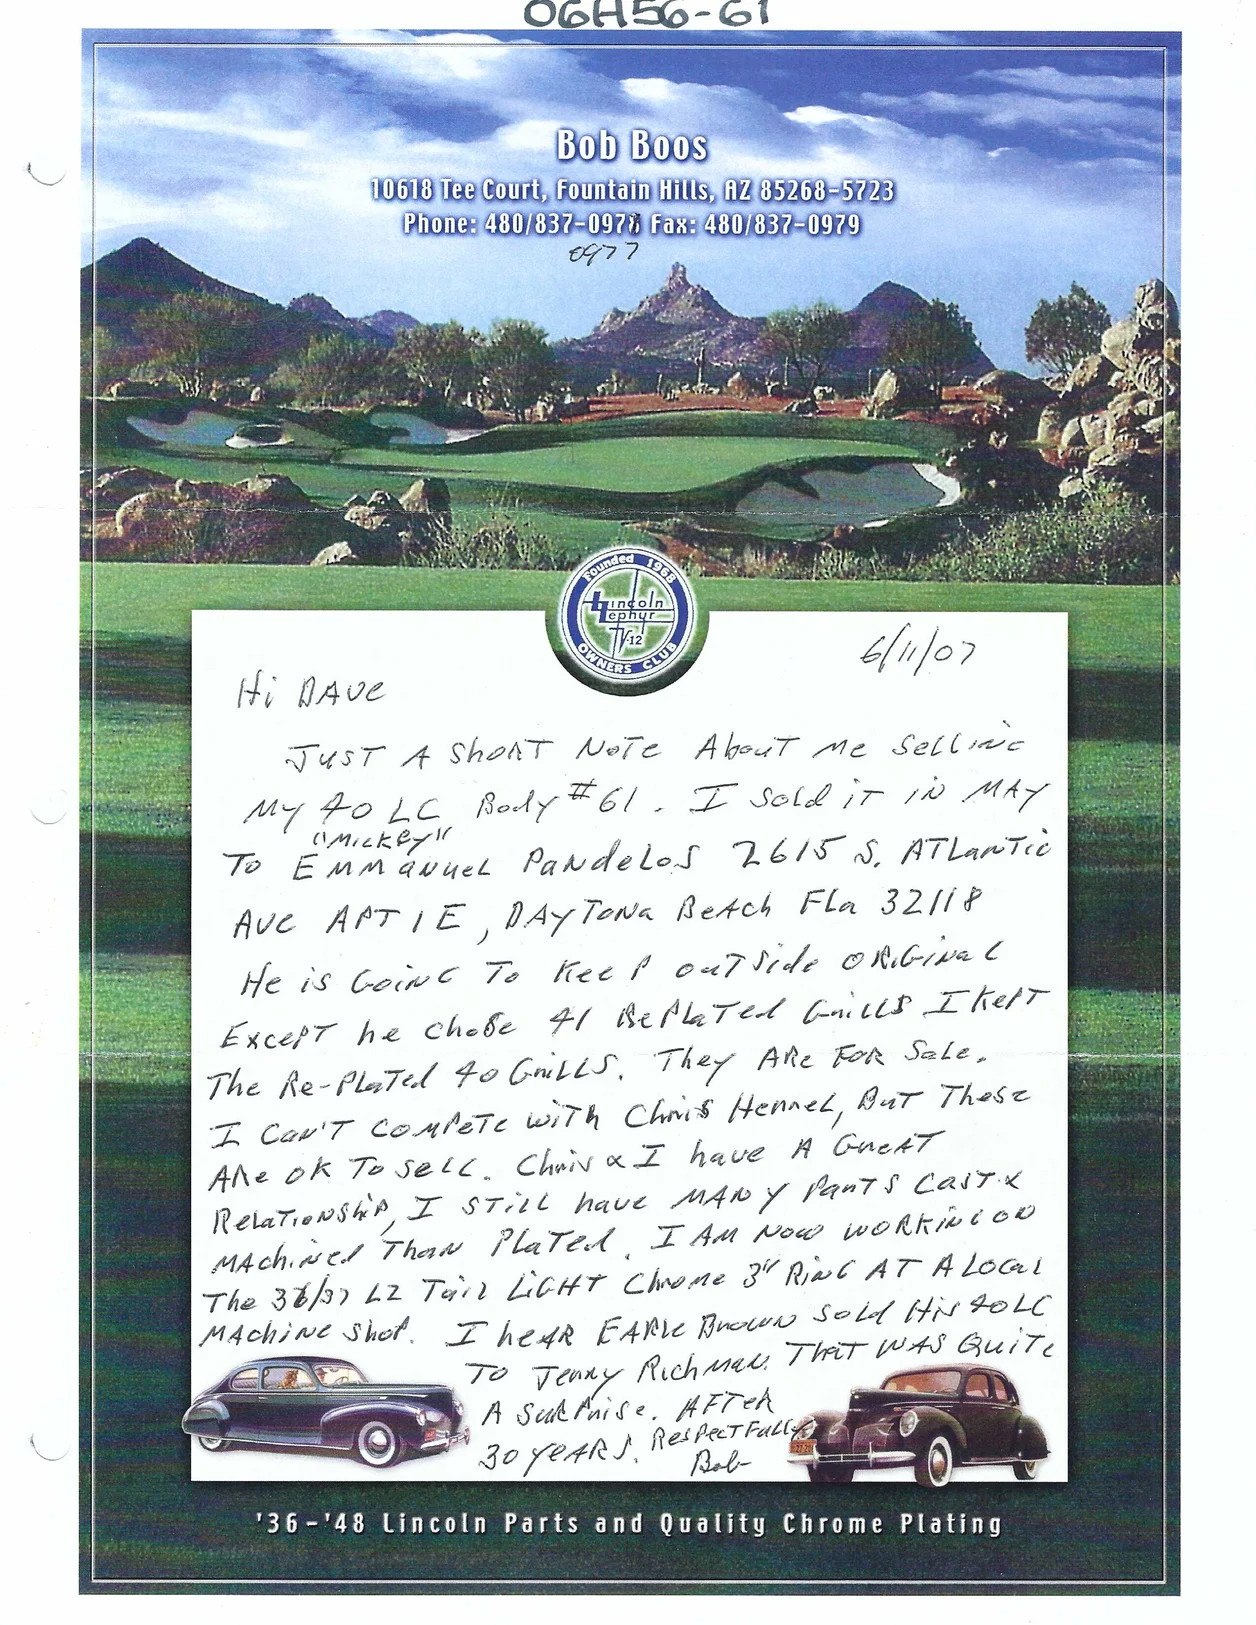 06H56-61
Bob Boos
10618 Tee Court, Fountain Hills, AZ 85268-5723
Phone: 480/837-0978 Fax: 480/837-0979
0977
Founded 1968
Lincoln
Zephyr
V-12
OWNERS CLUB
6/11/07
Hi DAVE
JUST A SHORT NOTE About me selling
My 40 LC Body #61. I sold it in MAY
"MICKEY"
To EMMANUEL PANDELOS 2615 S. ATLANTIC
AVE APT 1E, DAYTONA BEACH FLA 32118
He is GOING To Keep outside ORIGINAL
EXCEPT he chose 41 RePLATed GRILLS I KEPT
The Re-PLATed 40 GRILLS. They ARe FOR SALe.
I CAN'T COMPETE WITH CHRIS HENNEL, BUT These
ARe OK To SELL. Chris & I have A GREAT
RELATIONSHIP, I STILL have MANY PARTS CAST &
MACHINED THAN PLATED. I AM NOW WORKING ON
The 36/37 LZ TAIL LIGHT Chrome 3" RING AT A LOCAL
MACHINE SHOP. I heAR EARLE BROWN SOLD HIS 40 LC
TO Jenny RICHMAN. THAT WAS QUITE
A SURPRISE. AFTER
30 YEARS. RESPECTFULLY
Bob
'36-'48 Lincoln Parts and Quality Chrome Plating